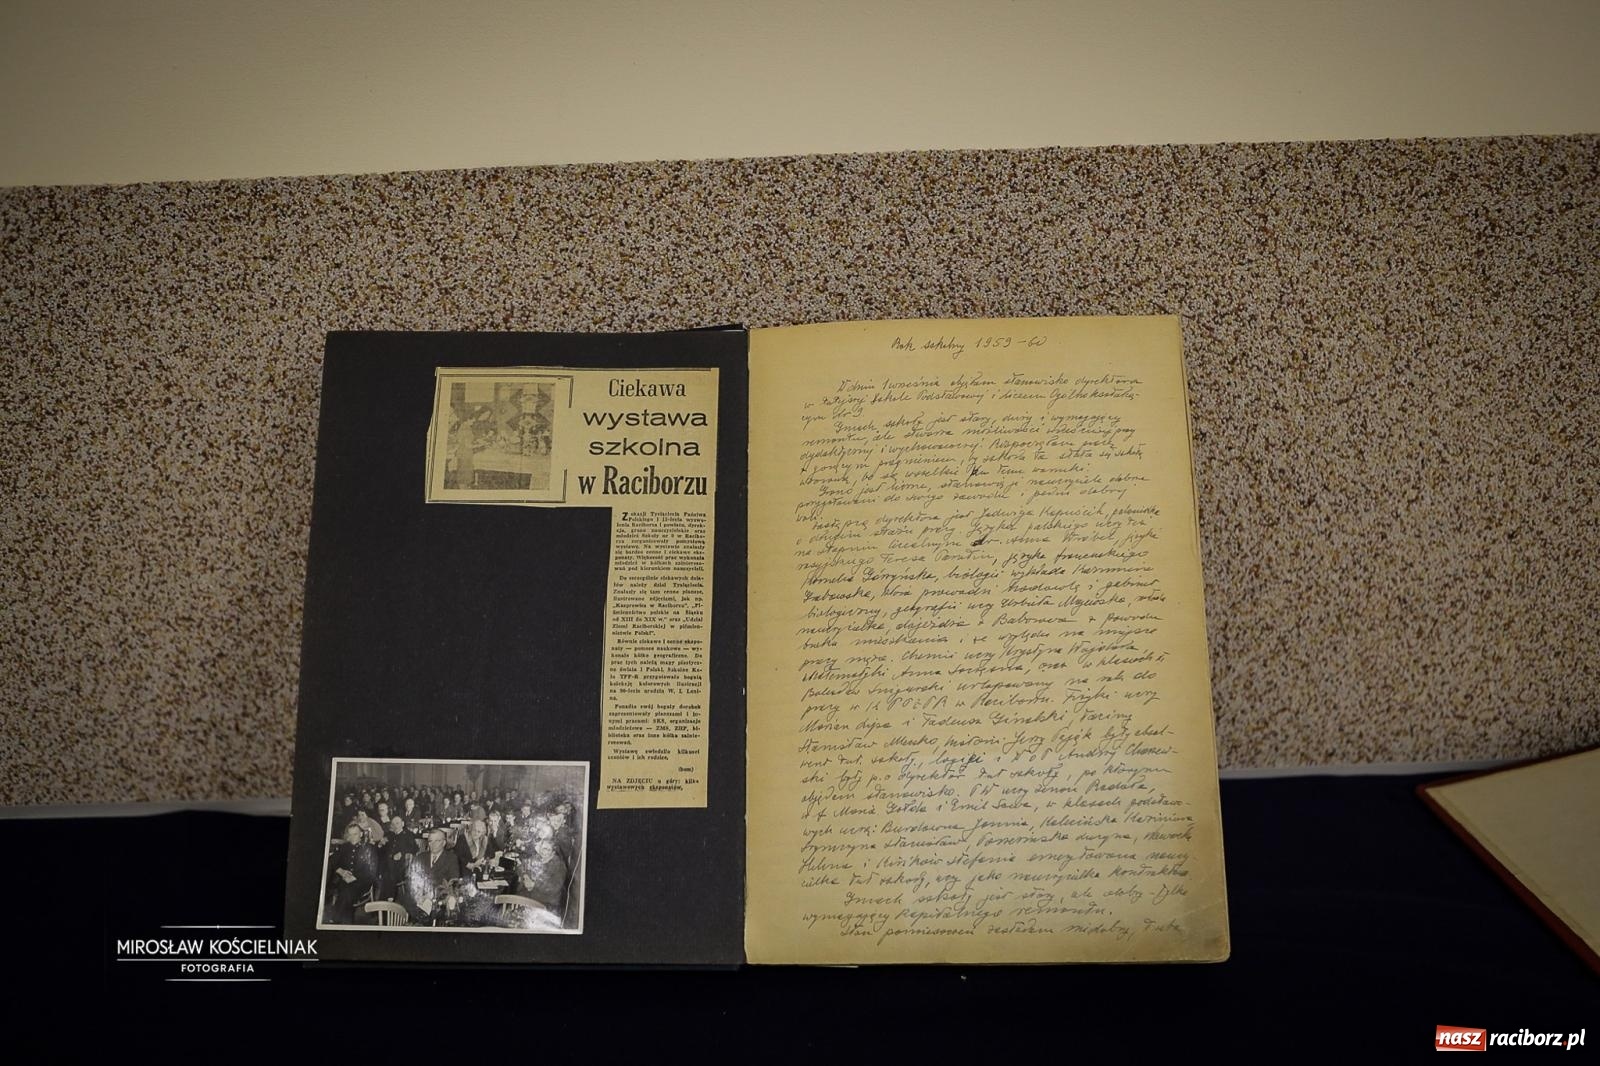 Ciekawa
wystawa
szkolna
w Raciborzu
Z okazji Tysiąclecia Państwa
Polskiego i 15-lecia wyzwo-
lenia Raciborza i powiatu, dyrek-
cja, grono nauczycielskie oraz
młodzież Szkoły nr 3 w Racibo-
rzu zorganizowały pomysłową
wystawę. Na wystawie znalazły
się bardzo cenne i ciekawe eks-
ponaty. Większość prac wykonała
młodzież w kółkach zaintereso-
wań pod kierunkiem nauczycieli.
Do szczególnie ciekawych dzia-
łów należy dział Tysiąclecia.
Znalazły się tam cenne plansze,
ilustrowane zdjęciami, jak np.
„Kasprowicz w Raciborzu", „Pi-
śmiennictwo polskie na Śląsku
od XIII do XIX w." oraz „Udział
Ziemi Raciborskiej w piśmien-
nictwie Polski".
Równie ciekawe i cenne ekspo-
naty — pomoce naukowe — wy-
konało kółko geograficzne. Do
prac tych należą mapy plastycz-
ne świata i Polski. Szkolne Ko-
ło TPP-R przygotowało bogatą
kolekcję kolorowych ilustracji
na 90-lecie urodzin W. I. Leni-
na.
Ponadto swój bogaty dorobek
zaprezentowały planszami i in-
nymi pracami: SKS, organizacje
młodzieżowe — ZMS, ZHP, bi-
blioteka oraz inne kółka zainte-
resowań.
Wystawę zwiedziło kilkuset
uczniów i ich rodzice.
(bom)
NA ZDJĘCIU u góry: kilka
wystawowych eksponatów.
Rok szkolny 1959-60
W dniu 1 września objęłam stanowisko dyrektora
w tutejszej Szkole Podstawowej i Liceum Ogólnokształcą-
cym
Gmach szkoły jest stary, duży i wymagający
remontu, ale stwarza możliwości właściwej pracy
dydaktycznej i wychowawczej. Rozpoczęłam pracę
z gorącym pragnieniem, by szkoła ta stała się szkołą
wzorową, bo są wszelkie ku temu warunki.
Grono jest liczne, stanowią je nauczyciele dobrze
przygotowani do swego zawodu i pełni dobrej
woli.
Zastępcą dyrektora jest Jadwiga Kapuścik, polonistka
o długim stażu pracy. Języka polskiego uczy też
na stopniu licealnym dr. Anna Wróbel, języka
rosyjskiego Teresa języka francuskiego
Kornelia biologii wykłada Kazimiera
Grabowska, która prowadzi środowisko i gabinet
biologiczny, geografii uczy młoda
nauczycielka, dojeżdża z Baborowa z powodu
braku mieszkania i ze względu na miejsce
pracy męża. Chemii uczy Krystyna
matematyki Anna oraz w klasach
Bolesław urlopowany na rok do
pracy w KPPZPR w Raciborzu. Fizyki uczy
Marian Lipa i Tadeusz łaciny
Stanisław historii Jerzy były absol-
went tut. szkoły, logiki i Andrzej
ski były p.o dyrektor tut szkoły, po którym
objęłam stanowisko. PW uczy Zenon
w f Maria Gołda i Emil Sowa, w klasach podstawo-
wych uczą: Janina, Kazimiera
Stanisława,
Helena i Stefania emerytowana nauczy-
cielka tut szkoły, uczy jako nauczycielka kontraktowa
Gmach szkoły jest stary, ale dobry - tylko
wymagający kapitalnego remontu.
Stan pomieszczeń zastałam niedobry,
MIROSŁAW KOŚCIELNIAK
FOTOGRAFIA
nasz raciborz.pl